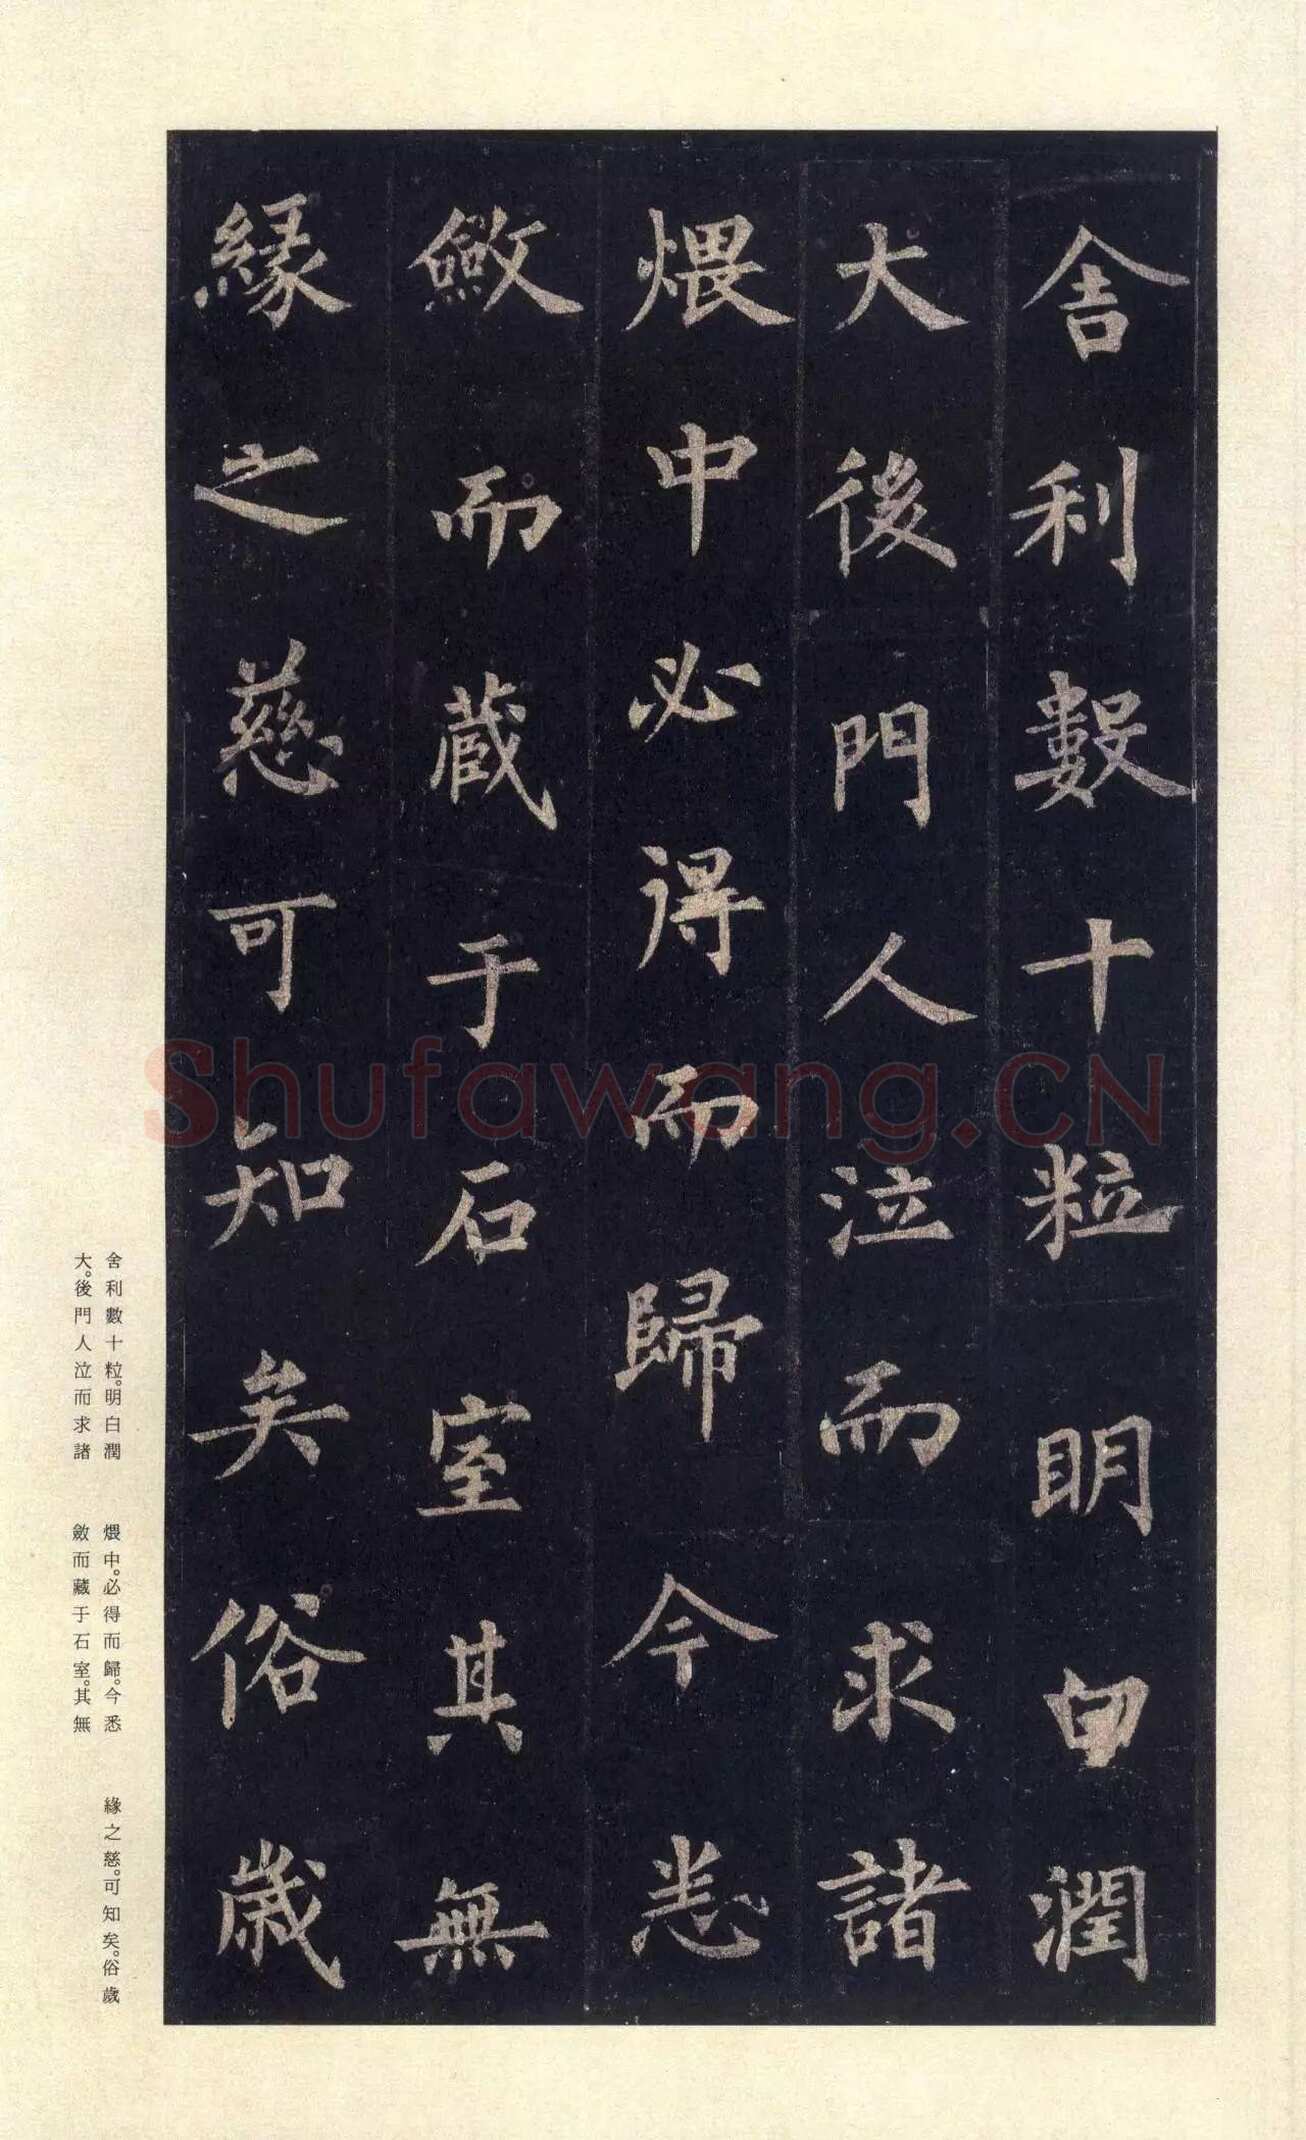 舍利數十粒明白潤
大後門人泣而求諸
煨中必得而歸今悉
斂而藏于石室其無
緣之慈可知矣俗歲
Shufawang.CN
舍利數十粒。明白潤
大。後門人泣而求諸
煨中。必得而歸。今悉
斂而藏于石室。其無
緣之慈。可知矣。俗歲